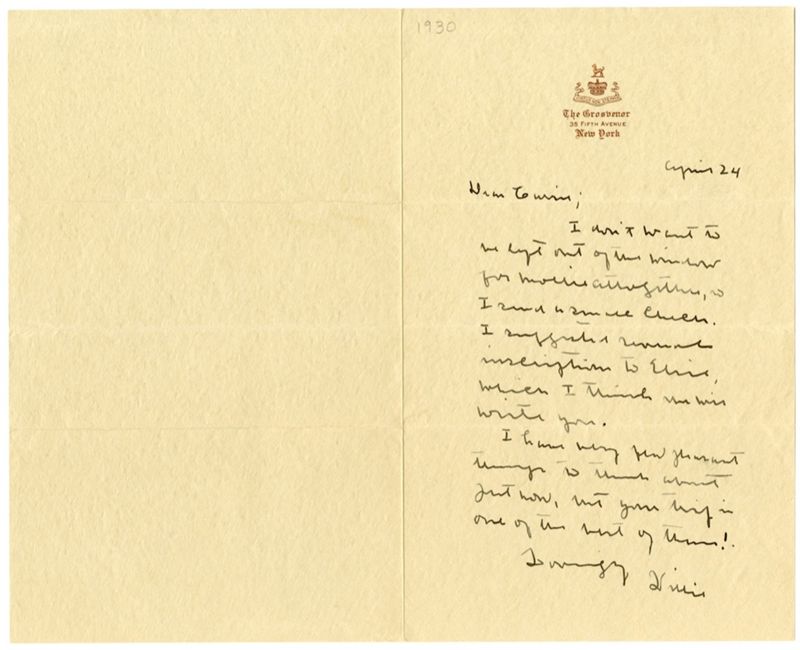 1930
VIRTUS NON STEMMA
The Grosvenor
35 FIFTH AVENUE
New York
April 24
Dear Carrie;
I don't want to
be left out of the window
for Mollie altogether, so
I send a small check.
I suggested several
inscriptions to Elsie,
which I think she will
write you.
I have very few pleasant
things to think about
just now, but your trip is
one of the best of them!
Lovingly
Willie